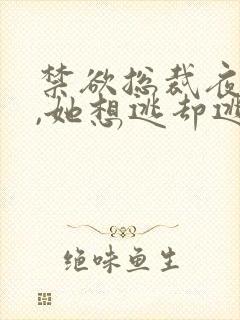 禁欲总裁夜
,她想逃却逃
绝味鱼生